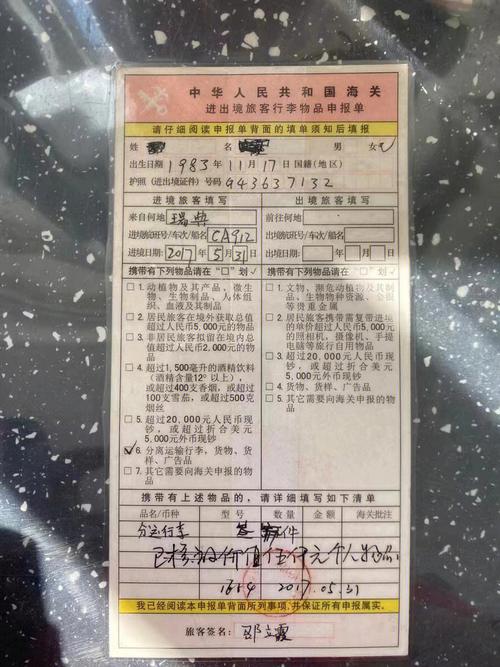 中华人民共和国海关
进出境旅客行李物品申报单
请仔细阅读申报单背面的填单须知后填报
姓 名 男 女✓
出生日期 1983年11月17日 国籍(地区)
护照(进出境证件)号码 G43637132
进境旅客填写
来自何地 瑞典
进境航班号/车次/船名 CA912
进境日期: 2017年5月31日
携带有下列物品请在“□”划✓
□1.动植物及其产品，微生物、生物制品、人体组织、血液及其制品
□2.居民旅客在境外获取总值超过人民币5,000元的物品
□3.非居民旅客拟留在境内总值超过人民币2,000元的物品
□4.超过1,500毫升的酒精饮料(酒精含量12°以上)，或超过400支香烟，或超过100支雪茄，或超过500克烟丝
□5.超过20,000元人民币现钞，或超过折合美元5,000元外币现钞
✓6.分离运输行李，货物、货样、广告品
□7.其它需要向海关申报的物品
出境旅客填写
前往何地
出境航班号/车次/船名
出境日期: 年 月 日
携带有下列物品请在“□”划✓
□1.文物、濒危动植物及其制品、生物物种资源、金银等贵重金属
□2.居民旅客携带需复带进境的单价超过人民币5,000元的照相机、摄像机、手提电脑等旅行自用物品
□3.超过20,000元人民币现钞，或超过折合美元5,000元外币现钞
□4.货物、货样、广告品
□5.其它需要向海关申报的物品
携带有上述物品的，请详细填写如下清单
品名/币种 型号 数量 金额 海关批注
分运行李 件
已核放价值伍仟元个人物品
1614 2017.05.31
我已经阅读本申报单背面所列事项，并保证所有申报属实。
旅客签名: 邵立霞